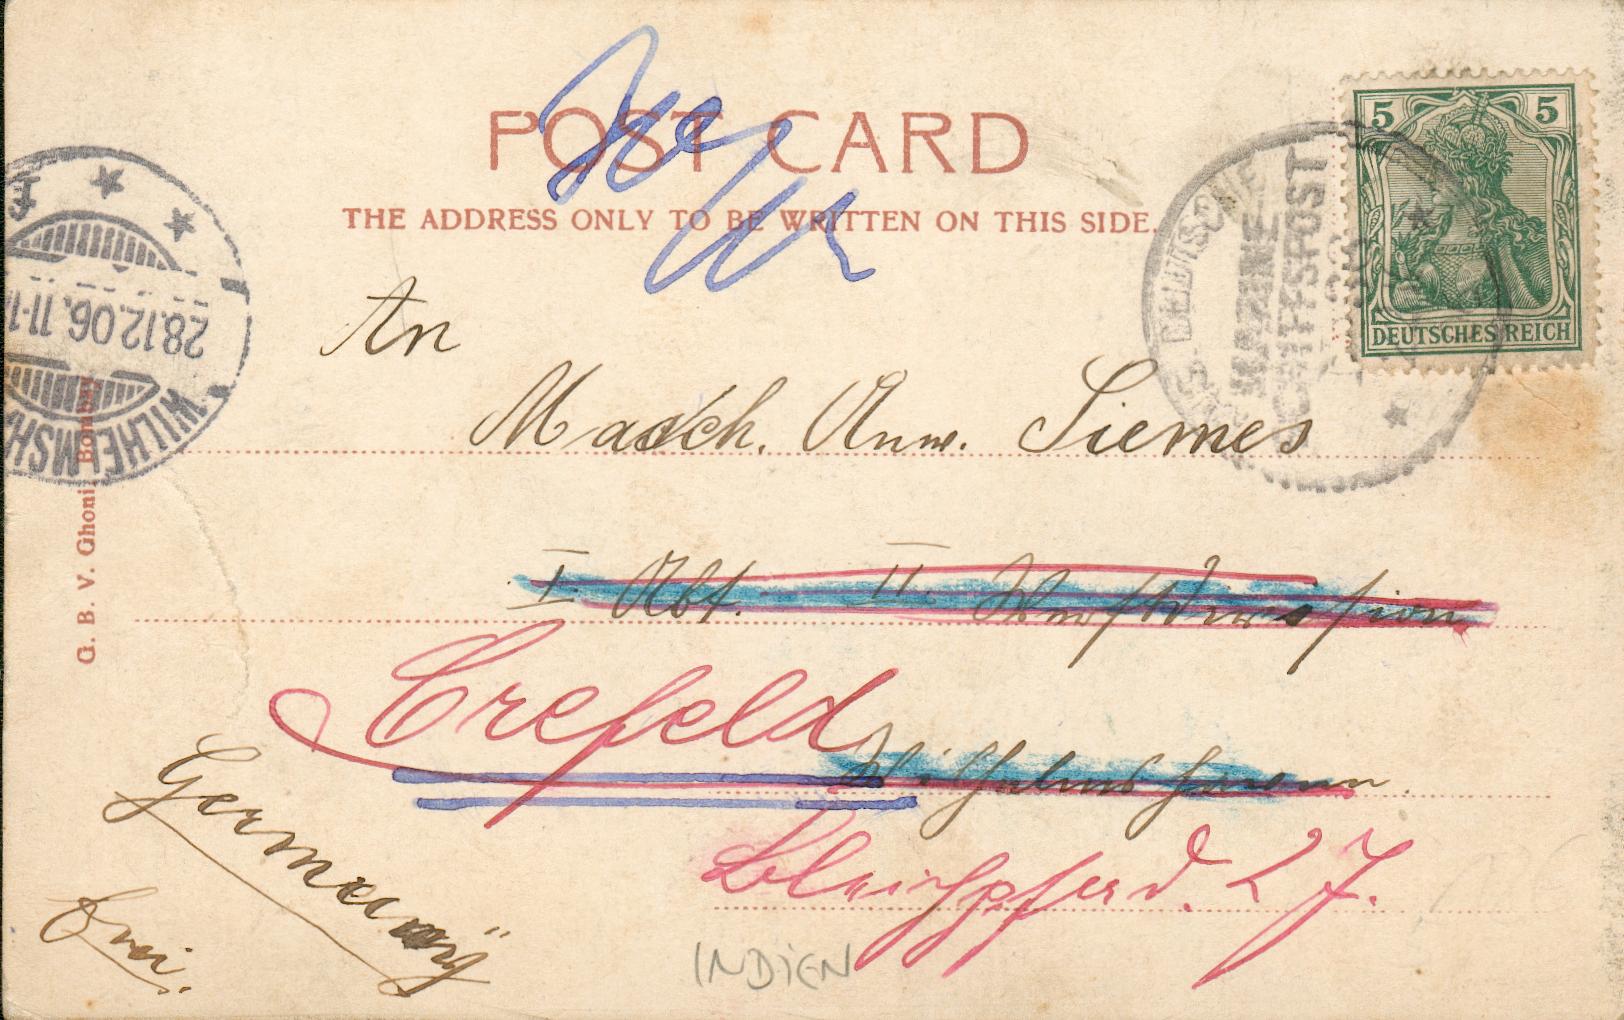 POST CARD
THE ADDRESS ONLY TO BE WRITTEN ON THIS SIDE.
5 5
DEUTSCHES REICH
DEUTSCHE
MARINE
SCHIFFSPOST
28.12.06. 11-1
WILHELMSHA
G. B. V. Ghoni, Bombay
An
Masch. Anw. Siemes
I. Abt. II. Werftdivision
Crefeld
Wilhelmshaven.
27.
Germany
Frei.
INDIEN